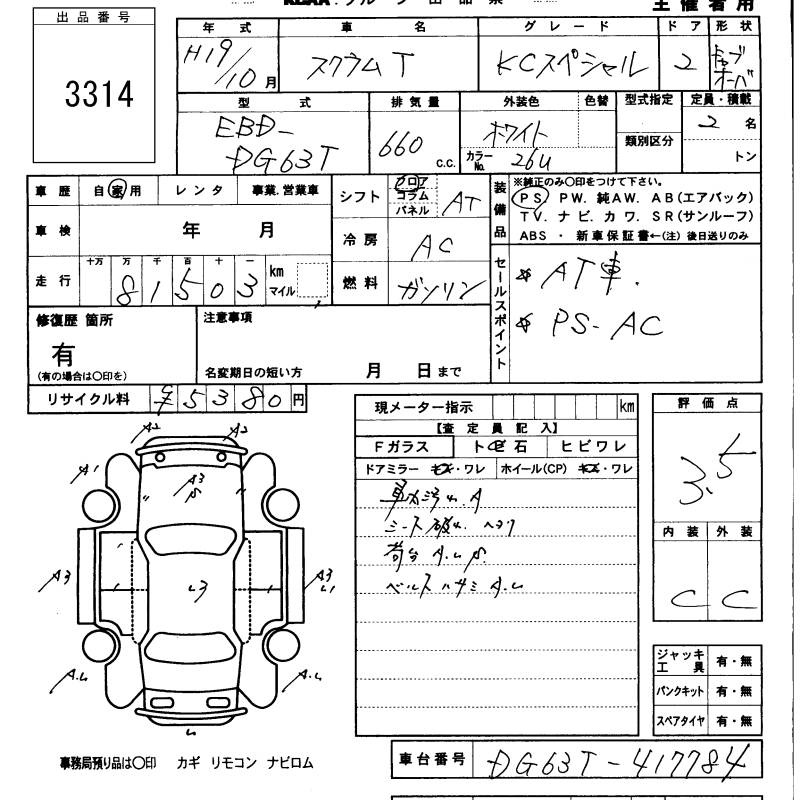 主催者用
出品番号
3314
年式 車名 グレード ドア 形状
H19/10月 スクラムT KCスペシャル 2 キャブオーバ
型式 排気量 外装色 色替 型式指定 定員・積載
EBD-DG63T 660 c.c. ホワイト 2 名
カラーNo. 26U 類別区分 トン
車歴 自家用 レンタ 事業.営業車
シフト フロア コラム パネル AT
装備品 ※純正のみ○印をつけて下さい。
PS PW. 純AW. AB(エアバック)
TV. ナビ. カワ. SR(サンルーフ)
ABS ・ 新車保証書←(注) 後日送りのみ
車検 年 月
冷房 AC
走行 十万 万 千 百 十 一
81503 km マイル
燃料 ガソリン
セールスポイント
☆ AT車.
☆ PS-AC
修復歴 箇所
有
(有の場合は○印を)
注意事項
名変期日の短い方 月 日まで
リサイクル料 ¥5380円
現メーター指示 km
【査定員記入】
Fガラス トビ石 ヒビワレ
ドアミラー キズ・ワレ ホイール(CP) キズ・ワレ
シート破れ
荷台 A.U P.
評価点
3.5
内装 外装
C C
A2 A2
A1 A3 P
A3 A3
U3 U1
A.U A.U
U
ジャッキ工具 有・無
パンクキット 有・無
スペアタイヤ 有・無
事務局預り品は○印 カギ リモコン ナビロム
車台番号 DG63T-417784